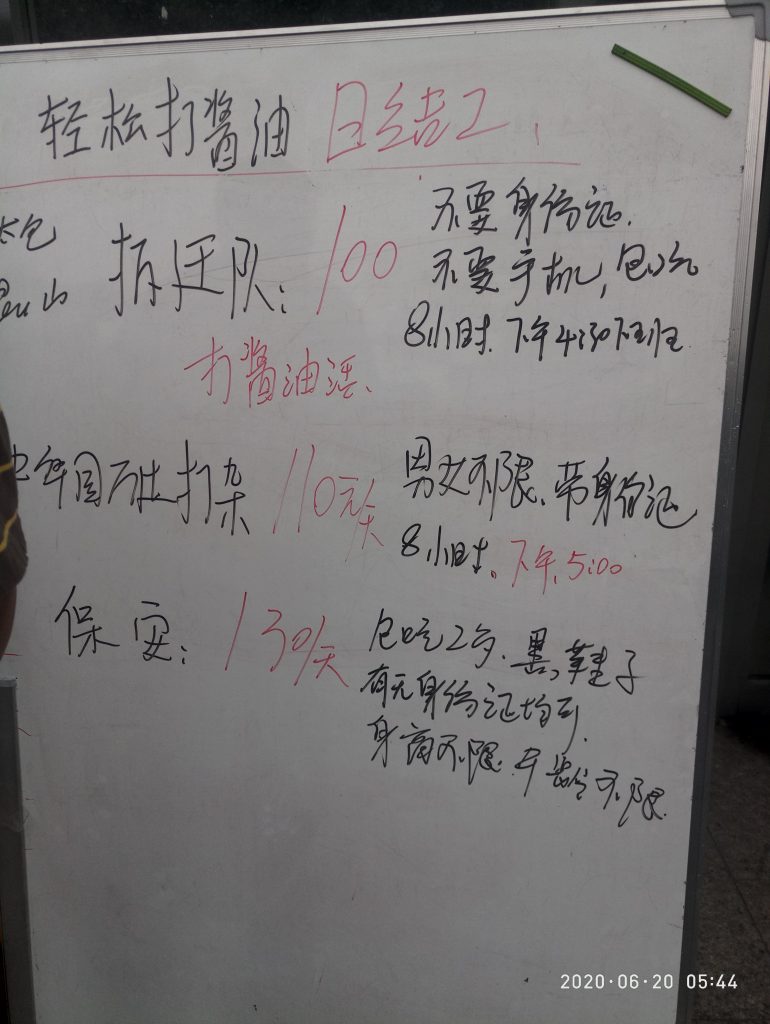 轻松打酱油 日结工、
拆迁队: 100 不要身份证.
不要手机, 包吃
8小时. 下午4:30下班
打酱油活、
打杂 110元/天 男女不限、带身份证
8小时。下午5:00
保安: 130/天 包吃2歺. 黑、革鞋子
有无身份证均可.
身高不限. 年龄不限.
2020·06·20 05:44